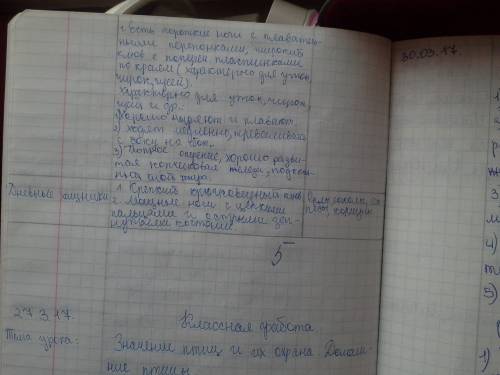 1. Есть короткие ноги с плаватель-
ными перепонками, широкий
клюв с попереч. пластинками
по краям (характерно для уток,
чирок, гусей).
Характерно для уток, чирок,
гусей и др.:
1) Хорошо ныряют и плавают.
2) Ходят медленно, переваливаясь
с боку на бок.
3) Плотное оперение, хорошо разви-
тая копчиковая железа, подкож-
ный слой жира.
Дневные хищники
1. Крепкий крючковидный клюв
2. Мощные ноги с цепкими
пальцами и острыми заг-
нутыми когтями.
Орлы, соколы,
коршун
5
27.3.17.
Классная работа
Тема урока:
Значение птиц и их охрана. Домаш-
ние птицы.
30.03.17.
3
4)
5)
1)